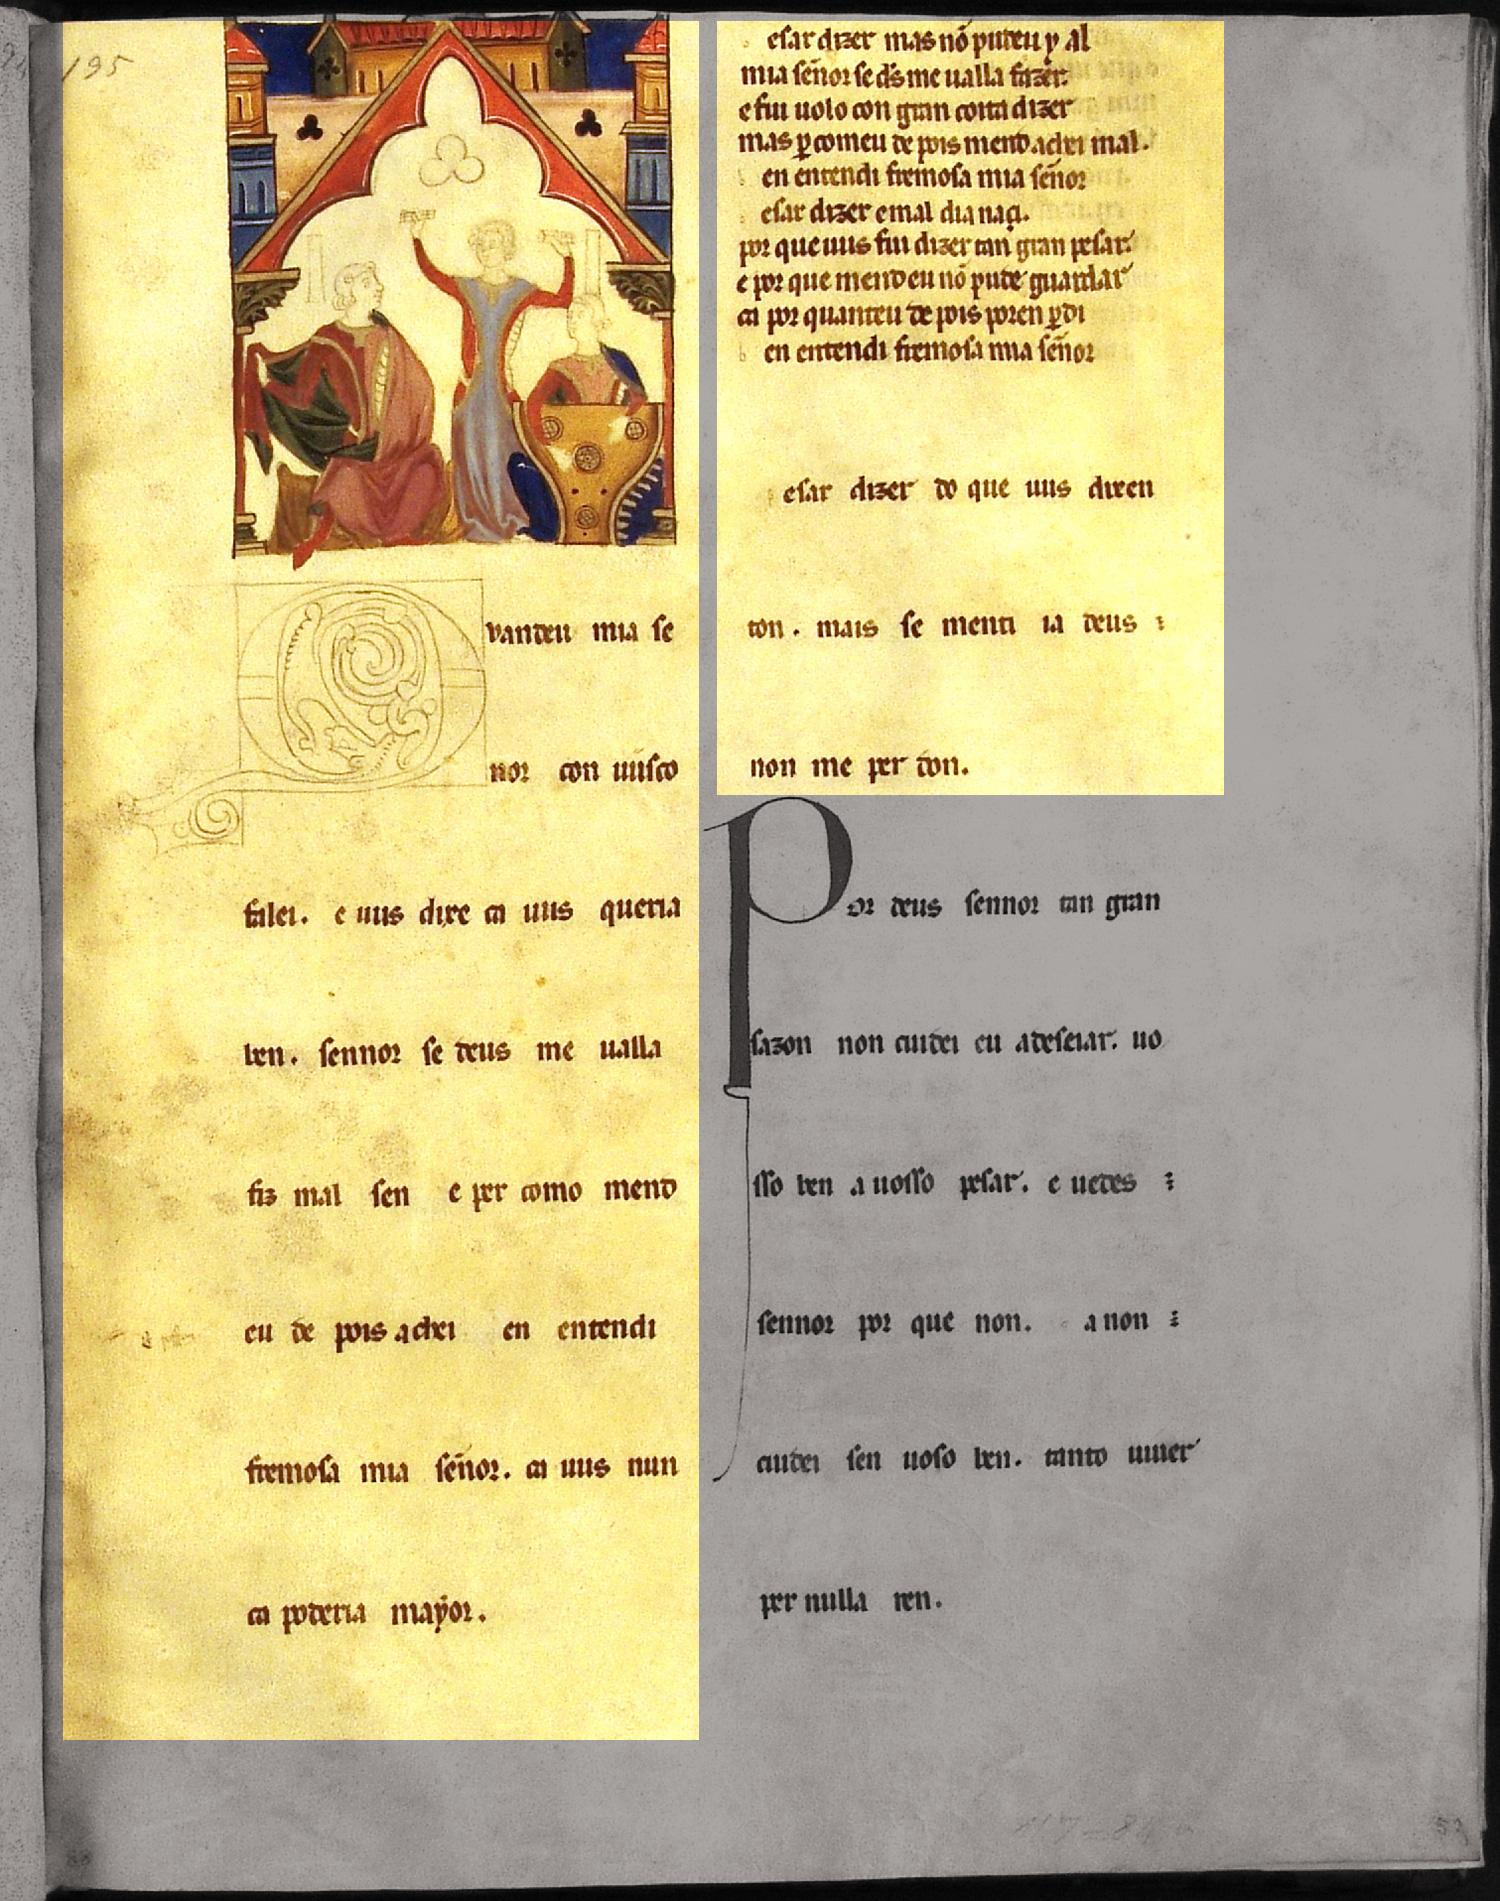 195
vanteu mia se
nor con uusco
falei. e uus dixe ca uus queria
ben. sennor se deus me ualla
fiz mal sen e per como mend
eu de pois achei en entendi
fremosa mia señor. ca uus nun
ca poderia mayor.
esar dizer mas nõ puteu y al
mia señor se d̃s me ualla fazer.
e fui uolo con gran coita dizer
mas ꝑ comeu de pois mend achei mal.
en entendi fremosa mia señor
esar dizer e mal dia naçi.
por que uus fui dizer tan gran pesar.
e por que mend eu nõ pude guardar
ca por quanteu de pois poren ꝑdi
en entendi fremosa mia señor
esar dizer do que uus dixen
ton. mais se menti ia deus :
non me per don.
Por deus sennor tan gran
sazon non cuidei eu a deseiar. uo
sso ben a uosso pesar. e uedes :
sennor por que non. a non :
cuidei sen uoso ben. tanto uiuer
per nulla ren.